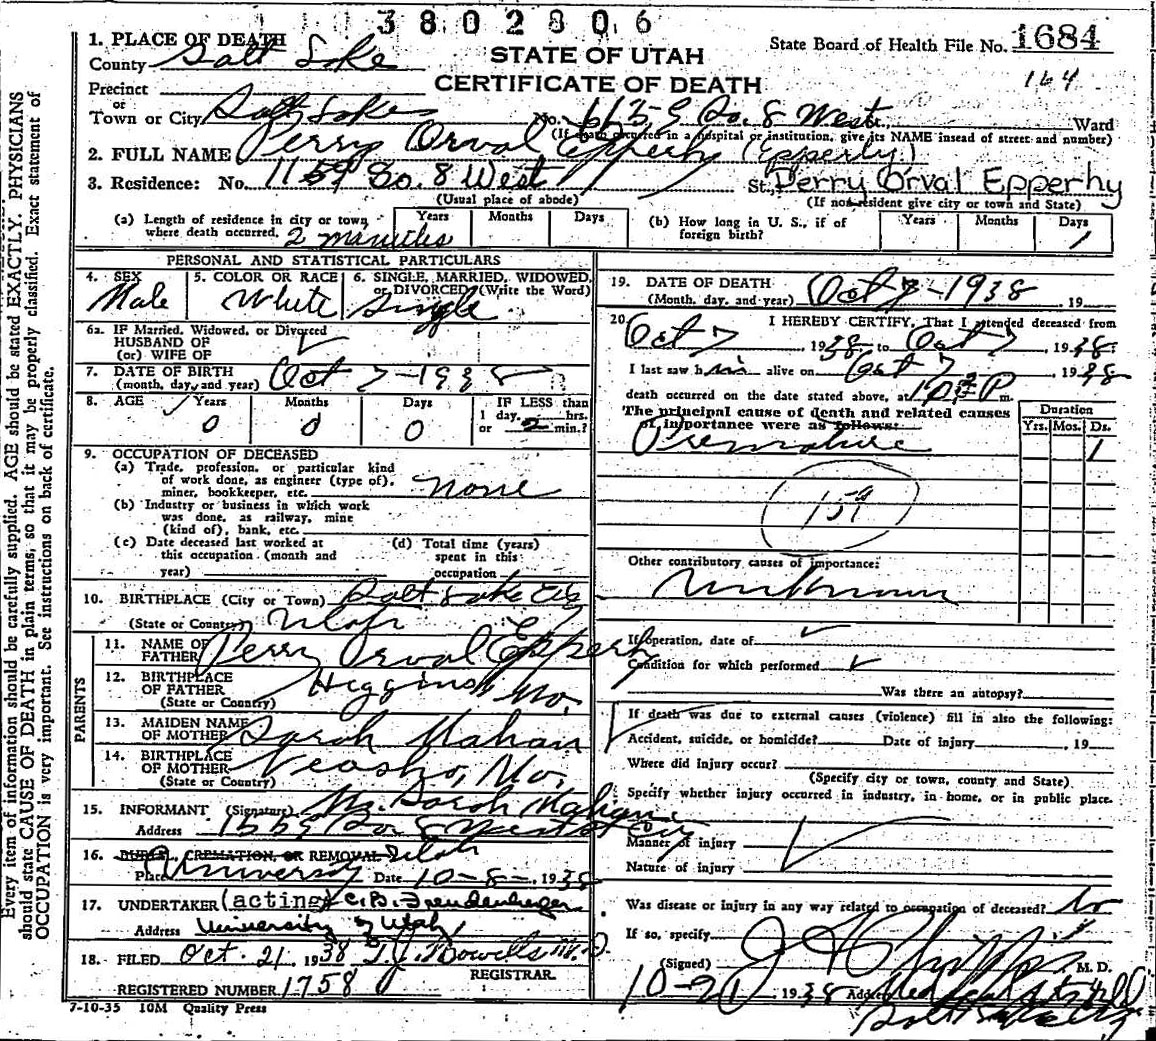 3802806
1. PLACE OF DEATH
STATE OF UTAH
CERTIFICATE OF DEATH
State Board of Health File No. 1684
164
County Salt Lake
Precinct
or
Town or City Salt Lake No. So. 8 West St., Ward
(If death occurred in a hospital or institution, give its NAME insead of street and number)
2. FULL NAME Perry Orval Epperly (Epperly)
3. Residence: No. 1159 So. 8 West St., Perry Orval Epperhy
(Usual place of abode)
(If non-resident give city or town and State)
(a) Length of residence in city or town where death occurred. 2 minutes
Years Months Days
(b) How long in U. S., if of foreign birth?
Years Months Days
1
PERSONAL AND STATISTICAL PARTICULARS
4. SEX Male
5. COLOR OR RACE White
6. SINGLE, MARRIED, WIDOWED, or DIVORCED (Write the Word) Single
6a. IF Married, Widowed, or Divorced
HUSBAND OF
(or) WIFE OF
7. DATE OF BIRTH (month, day, and year) Oct 7-1938
8. AGE Years Months Days
0 0 0
IF LESS than
1 day, hrs.
or 2 min.?
9. OCCUPATION OF DECEASED
(a) Trade, profession, or particular kind
of work done, as engineer (type of),
miner, bookkeeper, etc. none
(b) Industry or business in which work
was done, as railway, mine
(kind of), bank, etc.
(c) Date deceased last worked at
this occupation (month and
year)
(d) Total time (years)
spent in this
occupation
10. BIRTHPLACE (City or Town) Salt Lake City
(State or Country) Utah
PARENTS
11. NAME OF FATHER Perry Orval Epperly
12. BIRTHPLACE OF FATHER Higgins, Mo.
(State or Country)
13. MAIDEN NAME OF MOTHER Sarah Mahan
14. BIRTHPLACE OF MOTHER Neosho, Mo.
(State or Country)
15. INFORMANT (Signature) Sarah Mahan
Address So 8 West City
16. BURIAL, CREMATION, OR REMOVAL Utah
Place University Date 10-8-, 1938
17. UNDERTAKER (acting) C.B. Freudenberger
Address University of Utah
18. FILED Oct. 21 1938 T.J. Howells M.D.
REGISTRAR.
REGISTERED NUMBER 1758
7-10-35 10M Quality Press
19. DATE OF DEATH
(Month, day, and year) Oct 7-1938, 19
20. I HEREBY CERTIFY, That I attended deceased from
Oct 7, 1938 to Oct 7, 1938
I last saw him alive on Oct 7, 1938
death occurred on the date stated above, at P m.
The principal cause of death and related causes
of importance were as follows:
Premature
Duration
Yrs. Mos. Ds.
1
159
Other contributory causes of importance:
Unknown
If operation, date of
Condition for which performed
Was there an autopsy?
If death was due to external causes (violence) fill in also the following:
Accident, suicide, or homicide? Date of injury, 19
Where did injury occur?
(Specify city or town, county and State)
Specify whether injury occurred in industry, in home, or in public place.
Manner of injury
Nature of injury
Was disease or injury in any way related to occupation of deceased? No
If so, specify
(Signed) M. D.
10-21, 1938 Address
Every item of information should be carefully supplied. AGE should be stated EXACTLY. PHYSICIANS
should state CAUSE OF DEATH in plain terms, so that it may be properly classified. Exact statement of
OCCUPATION is very important. See instructions on back of certificate.